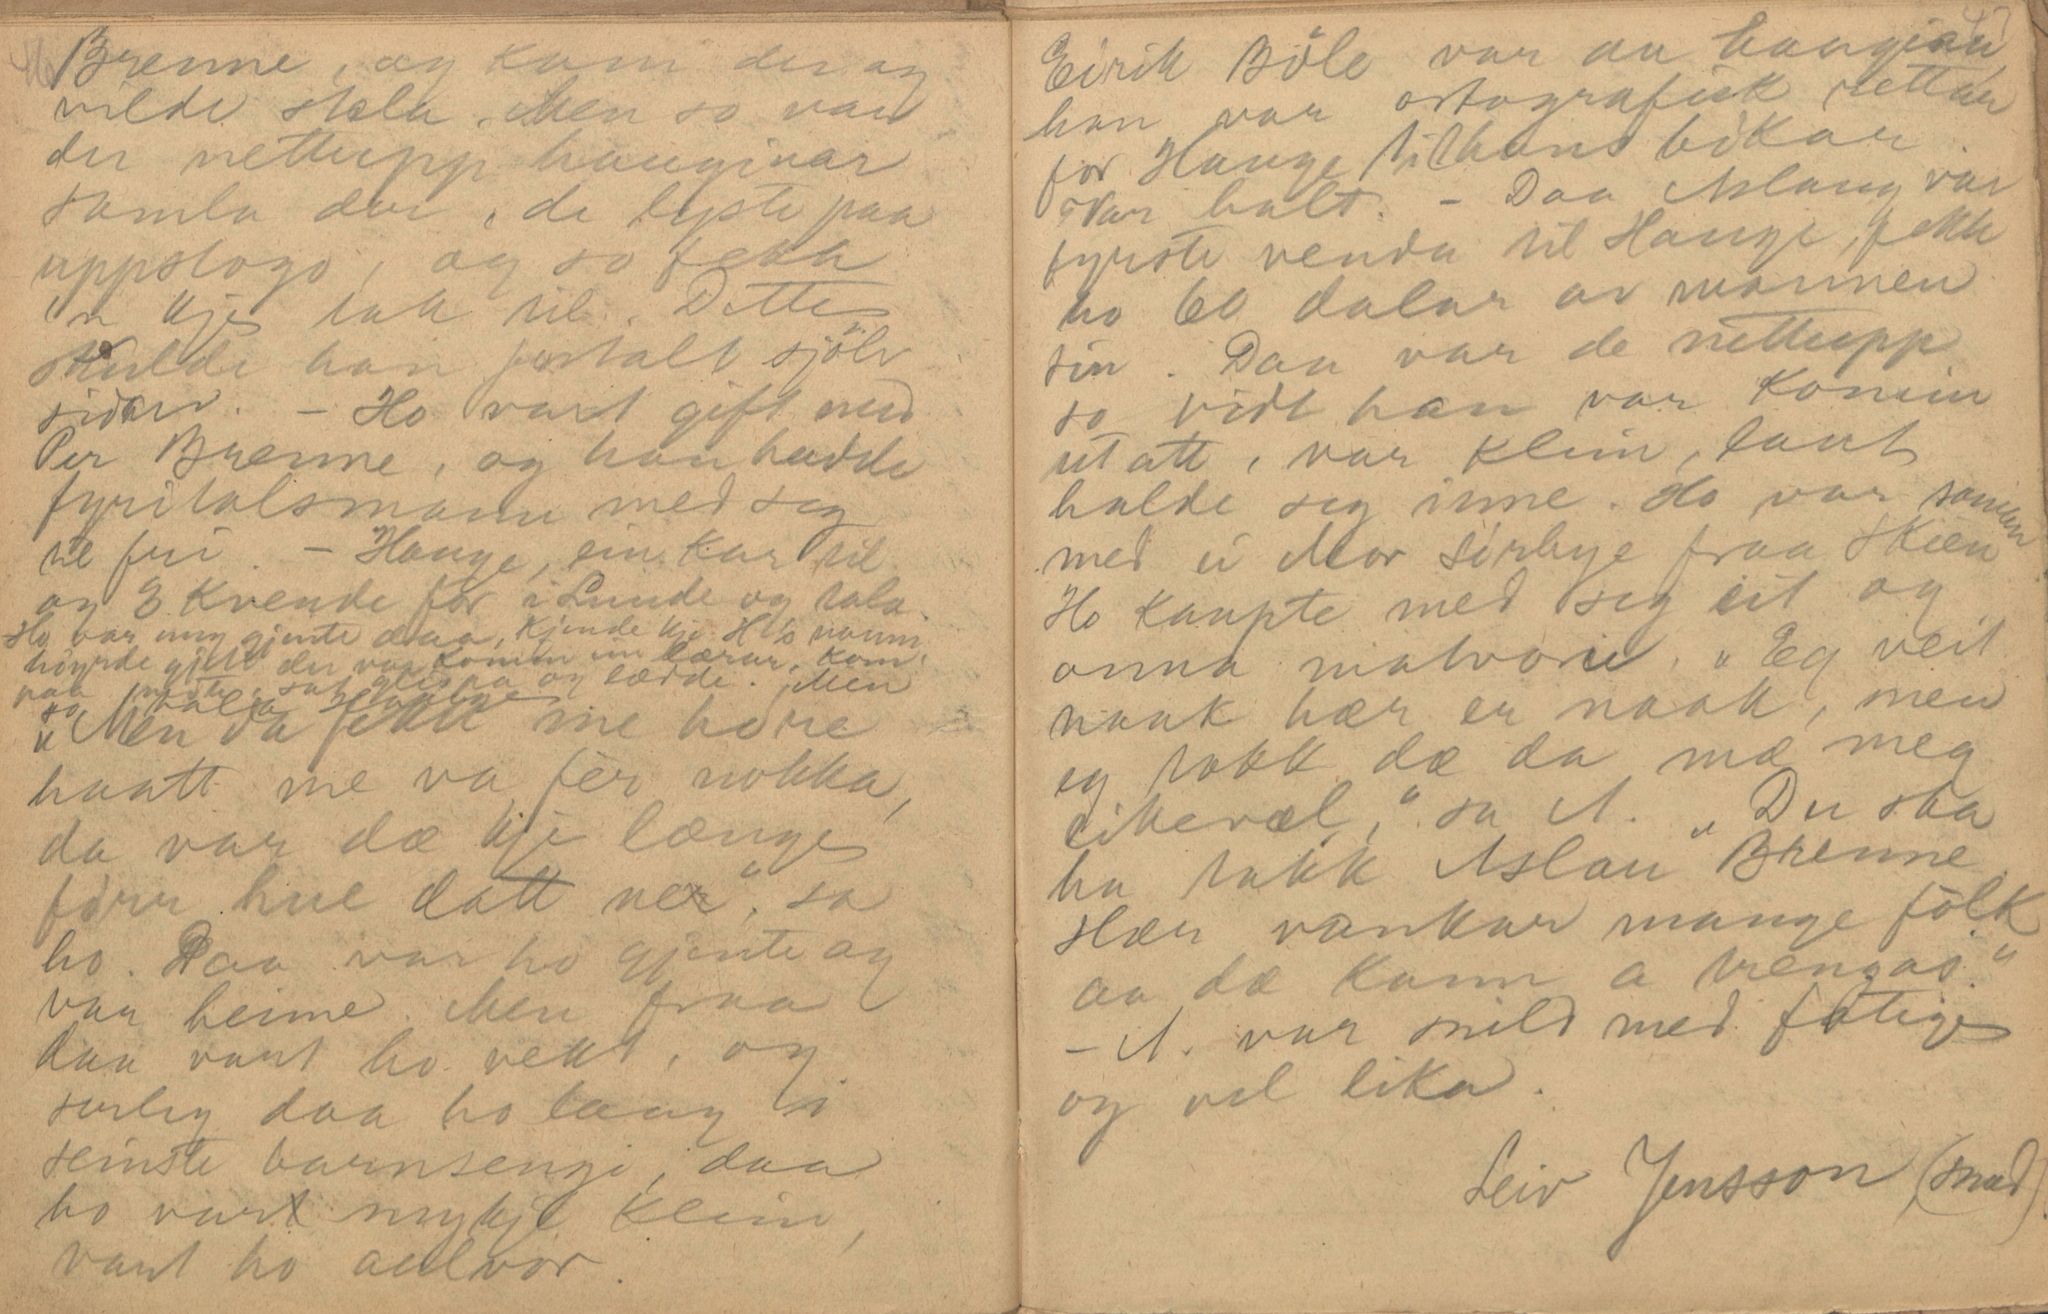 46
Brenne, og kom der og
vilde stela. Men so var
der nettupp haugianar
samla der, de lyste paa
uppslogo, og so fekk
'n kje tak til. Dette
skulde han fortalt sjölv
sidan. - Ho vart gift med
Per Brenne, og han hadde
fyritalsmann med seg
te fri. - Hauge, ein kar til
og 2 kvende för i Lunde og tala.
Ho var ung gjente daa, kjende kje H's namn,
höyrde gjete der var komen ein lærar, kom
paa og lædde. Men
so
"Men da fekk me höre
haatt me va fér nokka,
da var dæ kje længe
förr hue datt ner", sa
ho. Daa var ho gjente og
var heime. Men fraa
daa vart ho vekt, og
serleg daa ho laag i
seinste barnsengi, daa
ho vart mykje klein,
vart ho aalvor.
47
Eirik Böle var au haugian,
han var ortografisk rettar
for Hauge til hans bökar.
Var halt. - Daa Aslaug var
fyrste venda til Hauge, fekk
ho 60 dalar av mannen
sin. Daa var de nettupp
so vidt han var komin
ut att, var klein, laut
halde seg inne. Ho var saman
med ei Mor Sörbye fraa Skien
Ho kaupte med seg eit og
anna matvorir. "Eg veit
naak hær er naak, men
eg takk dæ da mæ meg
likevæl," sa A. "Du ska
ha takk Aslau Brenne
Hær vankar mange fólk
aa dæ kann a trengas."
- A. var snild med fatige
og vel lika.
Leiv Jensson (smed).